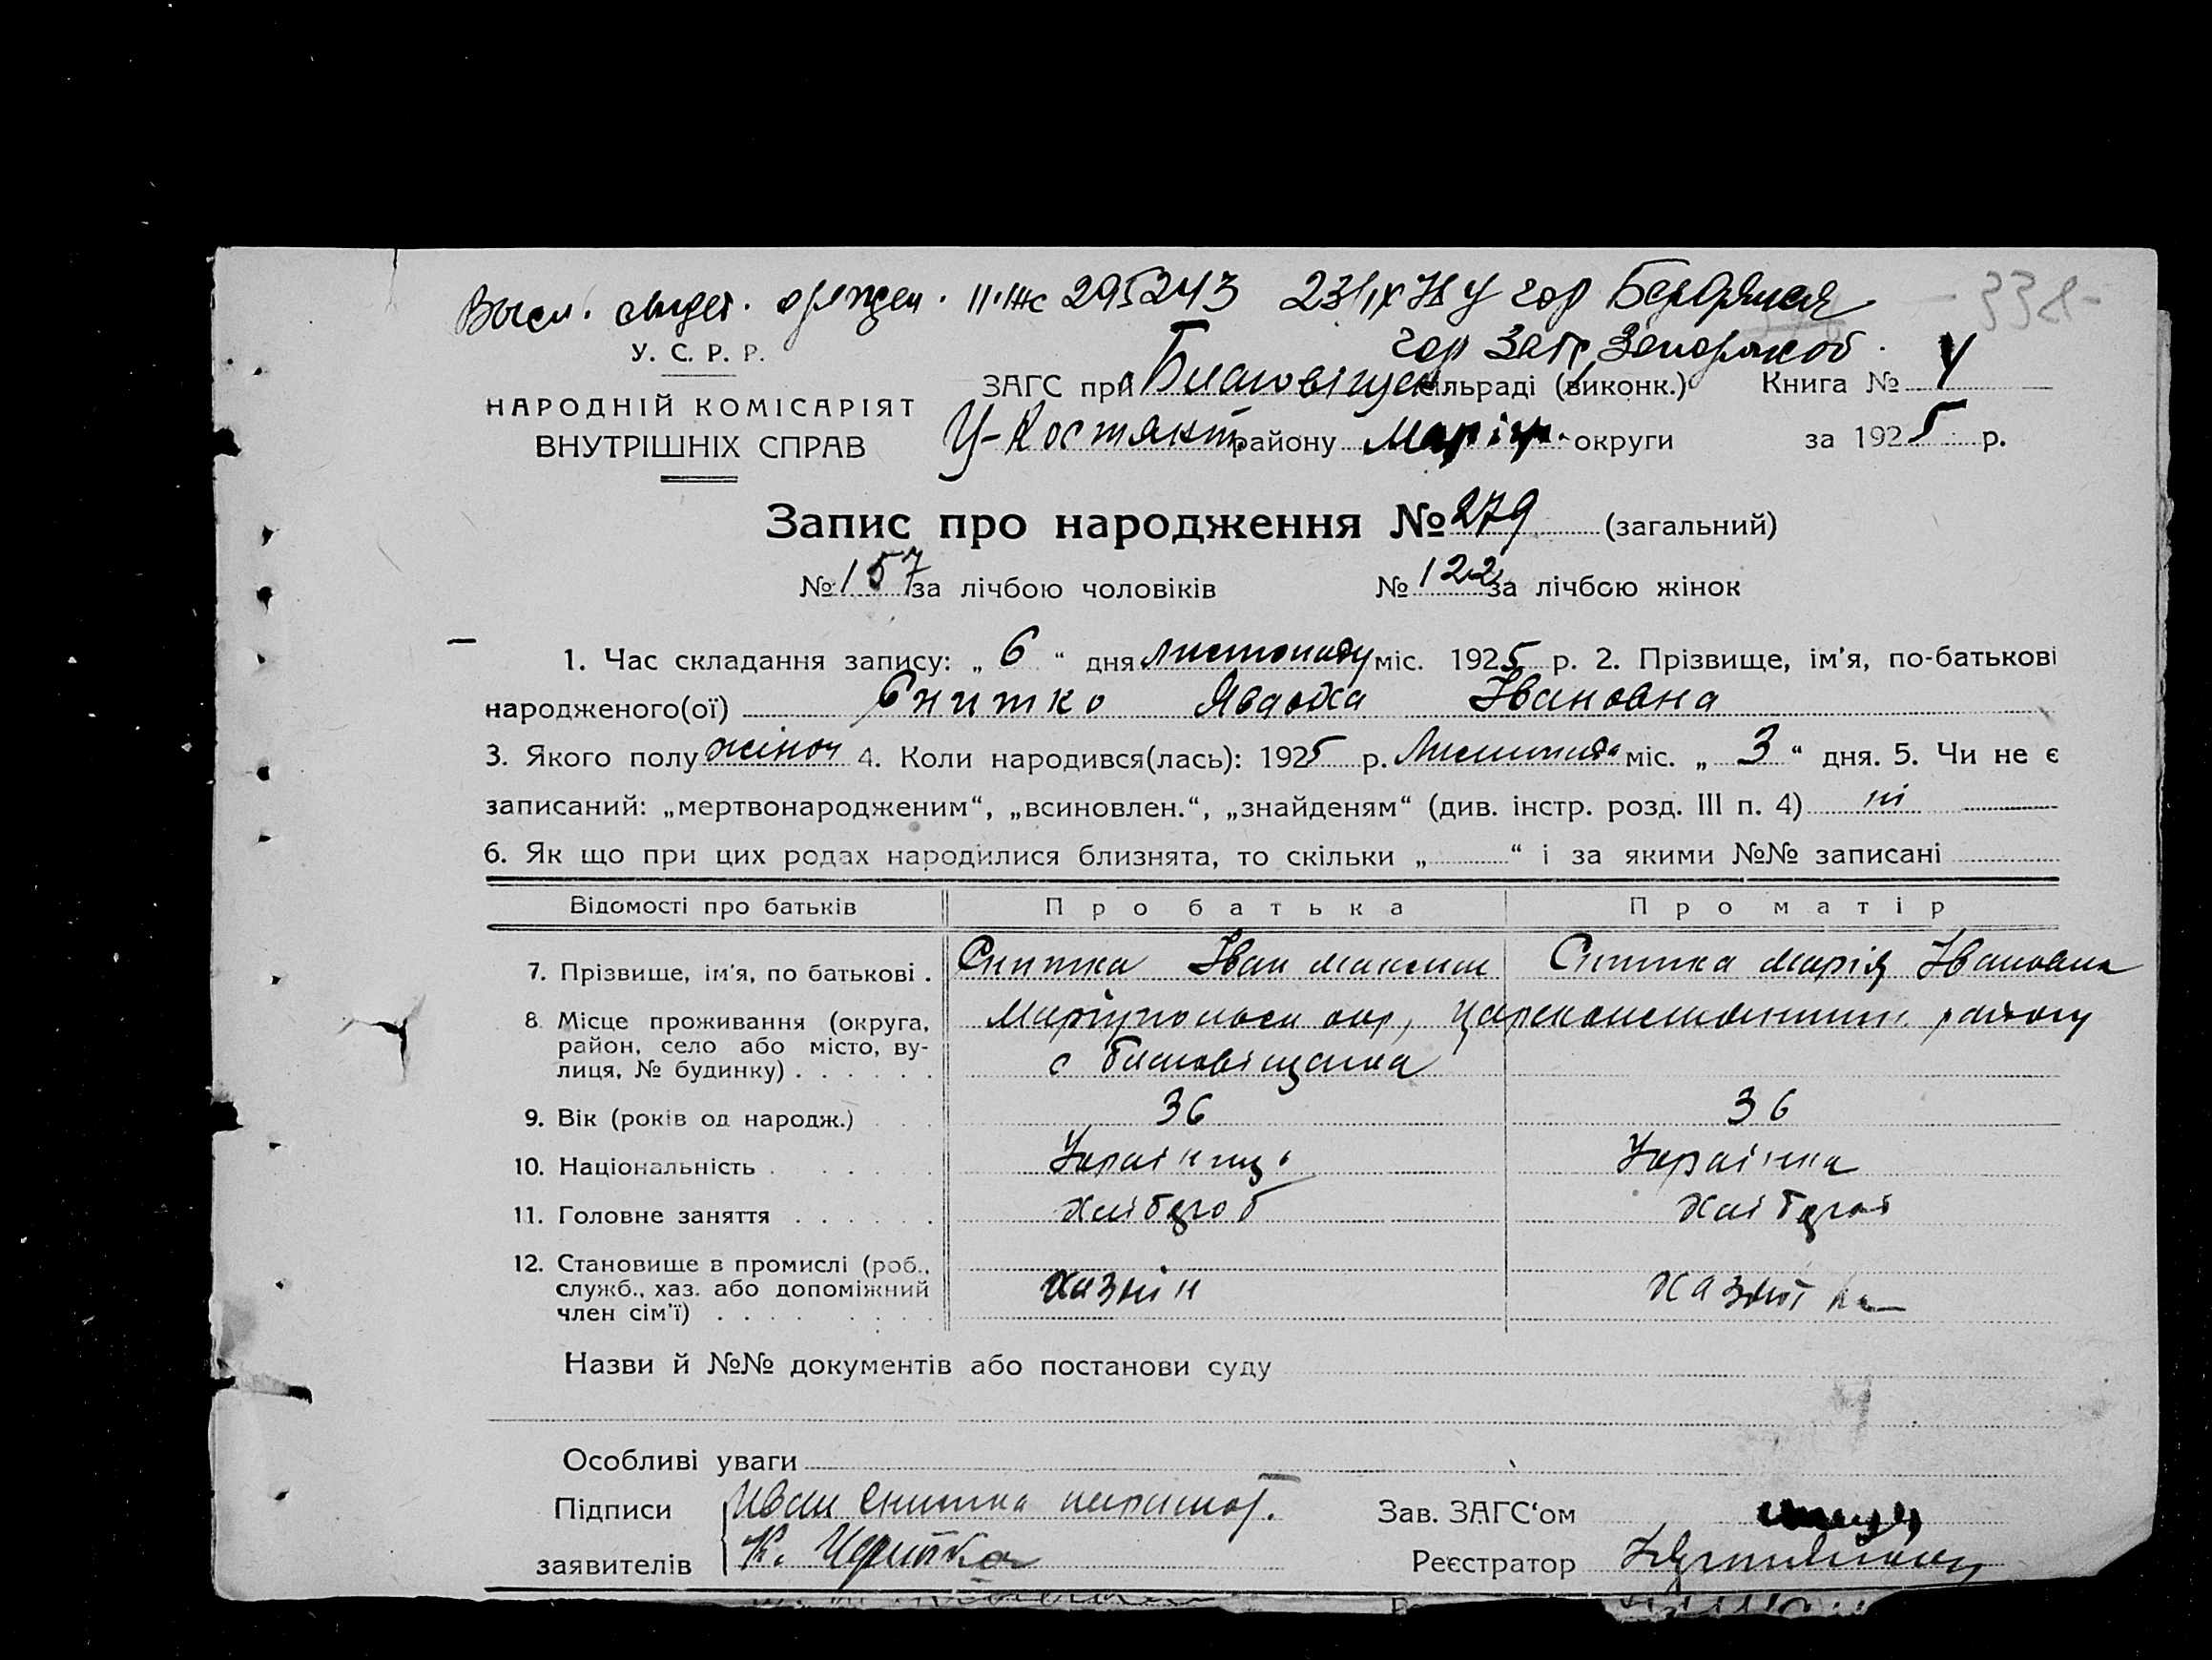 295243 гор
338
У. С. Р. Р.
гор
ЗАГС при сільраді (виконк.) Книга №
НАРОДНІЙ КОМІСАРІЯТ
ВНУТРІШНІХ СПРАВ
Ц-Костянт. району Маріуп. округи за 1925 р.
Запис про народження № 279 (загальний)
№ 157 за лічбою чоловіків № 122 за лічбою жінок
1. Час складання запису: „ 6 “ дня листопаду міс. 1925 р. 2. Прізвище, ім'я, по-батькові
народженого(ої) Снитко Явдоха Івановна
3. Якого полу жіноч 4. Коли народився(лась): 1925 р. Листопада міс. „ 3 “ дня. 5. Чи не є
записаний: „мертвонародженим“, „всиновлен.“, „знайденям“ (див. інстр. розд. III п. 4) ні
6. Як що при цих родах народилися близнята, то скільки „ “ і за якими №№ записані
Відомості про батьків Про батька Про матір
7. Прізвище, ім'я, по батькові . Снитка Іван Максим Снитка Марія Івановна
8. Місце проживання (округа,
район, село або місто, ву-
лиця, № будинку) . . . . . .
Маріупольск окр, Цареконстантин. району
с
9. Вік (років од народж.) . . . 36 36
10. Національність . . . . . Українец Українка
11. Головне заняття . . . . . . Хлібороб Хлібороб
12. Становище в промислі (роб.,
служб., хаз. або допоміжний
член сім'ї) . . . . . . . . .
Хазяін Хазяйка
Назви й №№ документів або постанови суду
Особливі уваги
Підписи Иван Снитка Зав. ЗАГС‘ом
заявителів К. Реєстратор